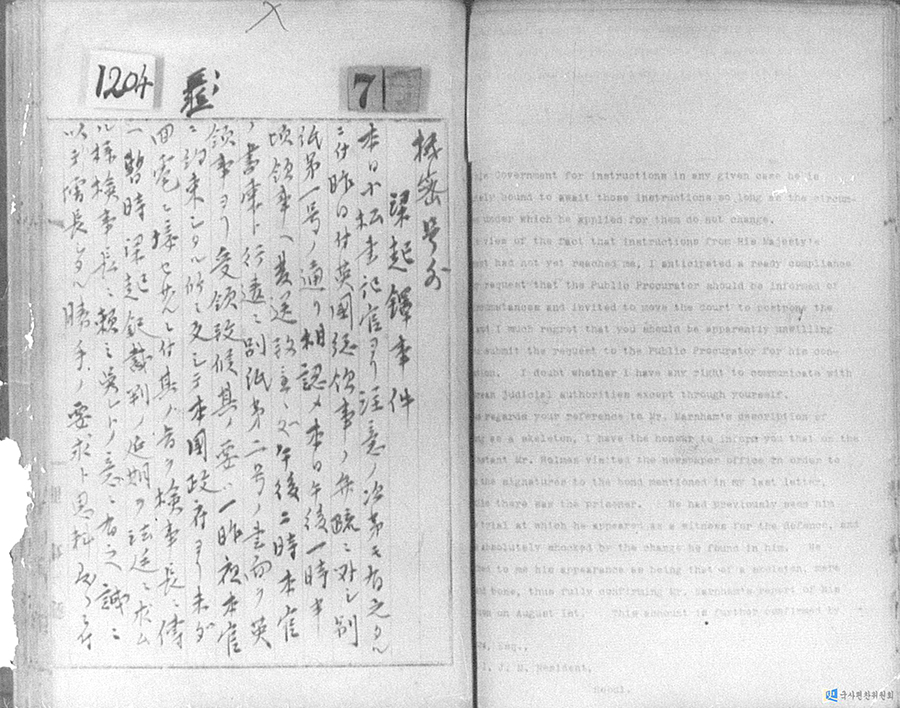 1204
7
機密号外
梁起鐸事件
本日小松書記官ヨリ注意ノ次第モ有之タル
ニ付昨日付英国総領事ノ弁疏ニ対シ別
紙第一号ノ通リ相認メ本日午後一時半
頃領事ヘ発送致主々処午後二時本官
ノ書束ト行違ニ別紙第二号ノ書面ヲ英
領事ヨリ受領致候其ノ要ハ一昨夜本官
ニ約束シタル所ニ文シテ本国政府ヨリ未ダ
回電ニ接セサルニ付其ノ旨ヲ検事長ニ傳
ヘ暫時梁起鐸裁判ノ延期ヲ法廷ニ求ム
ル様検事長ニ頼ミ呉レトノ意ニ有之誠ニ
以テ
勝手ノ要求ト思料
Government for instructions in any given case he is
bound to await those instructions so long as the circum-
under which he applied for them do not change.
view of the fact that instructions from His Majesty's
had not yet reached me, I anticipated a ready compliance
request that the Public Procurator should be informed of
and invited to move the court to postpone the
I much regret that you should be apparently unwilling
submit the request to the Public Procurator for his con-
I doubt whether I have any right to communicate with
judicial authorities except through yourself.
regards your reference to Mr. Marnham's description of
as a skeleton, I have the honour to inform you that on the
Mr. Holmes visited the newspaper office in order to
signatures to the bond mentioned in my last letter.
there was the prisoner. He had previously seen him
trial at which he appeared as a witness for the defence, and
absolutely shocked by the change he found in him. He
to me his appearance as being that of a skeleton, mere
bone, thus fully confirming Mr. Marnham's report of his
on August 1st. This account is further confirmed by
Esq.,
Resident,
Seoul.
국사편찬위원회